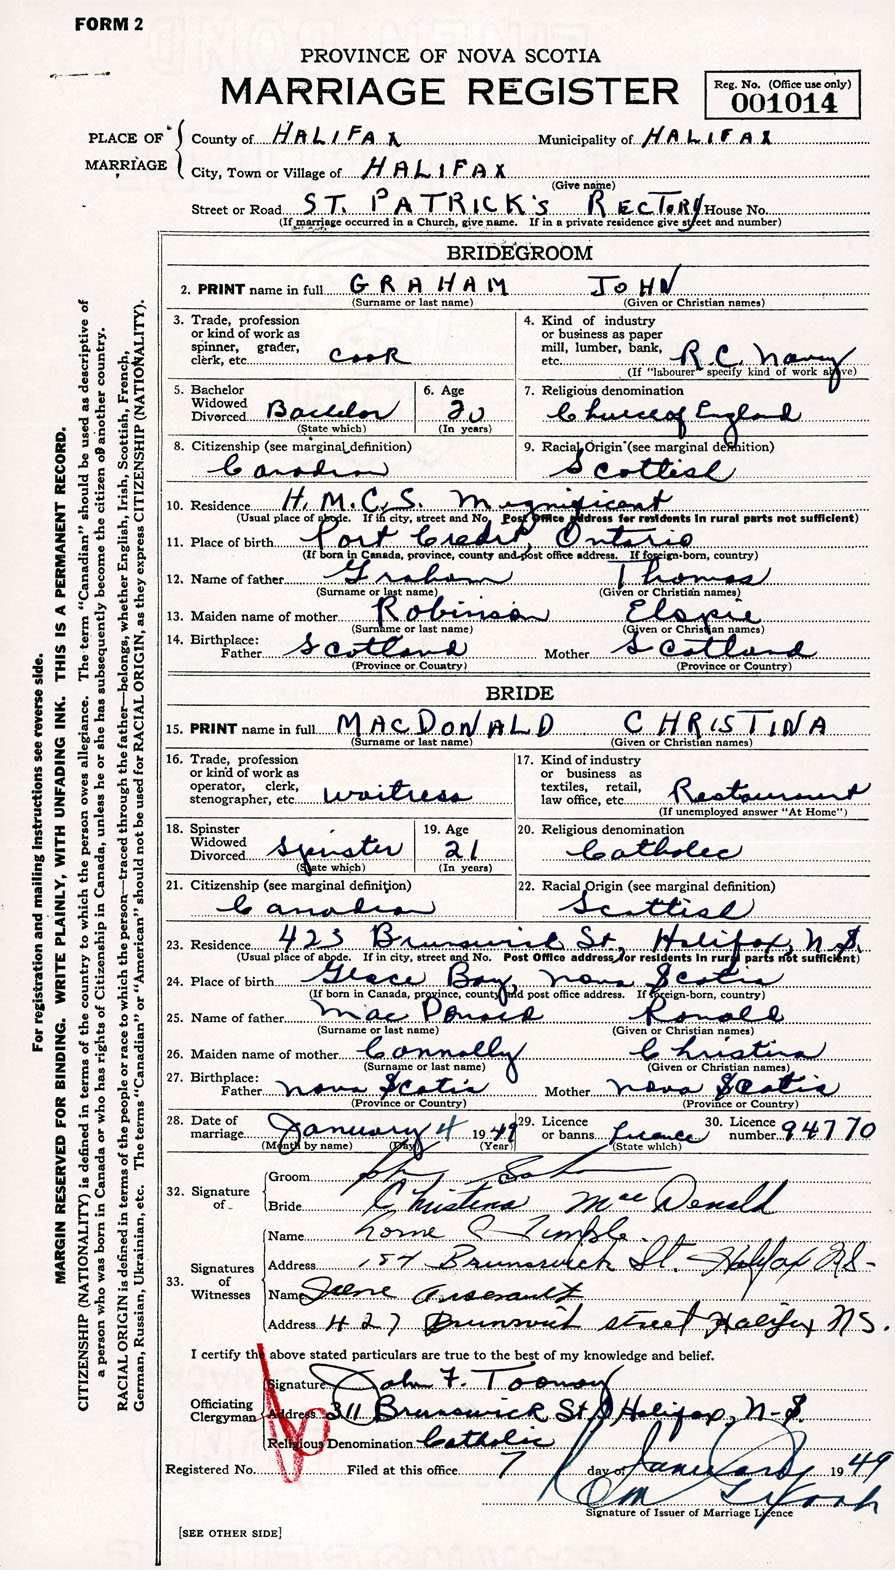 FORM 2
PROVINCE OF NOVA SCOTIA
MARRIAGE REGISTER
Reg. No. (Office use only)
001014
PLACE OF MARRIAGE
County of HALIFAX Municipality of HALIFAX
City, Town or Village of HALIFAX
(Give name)
Street or Road ST. PATRICK'S RECTORY House No.
(If marriage occurred in a Church, give name. If in a private residence give street and number)
BRIDEGROOM
2. PRINT name in full GRAHAM JOHN
(Surname or last name) (Given or Christian names)
3. Trade, profession or kind of work as spinner, grader, clerk, etc. Cook
4. Kind of industry or business as paper mill, lumber, bank, etc. R.C. Navy
(If "labourer" specify kind of work above)
5. Bachelor Widowed Divorced Bachelor
(State which)
6. Age 20
(In years)
7. Religious denomination Church of England
8. Citizenship (see marginal definition) Canadian
9. Racial Origin (see marginal definition) Scottish
10. Residence H.M.C.S. Magnificent
(Usual place of abode. If in city, street and No. Post Office address for residents in rural parts not sufficient)
11. Place of birth Port Credit, Ontario
(If born in Canada, province, county and post office address. If foreign-born, country)
12. Name of father Graham Thomas
(Surname or last name) (Given or Christian names)
13. Maiden name of mother Robinson Elspie
(Surname or last name) (Given or Christian names)
14. Birthplace: Father Scotland Mother Scotland
(Province or Country) (Province or Country)
BRIDE
15. PRINT name in full MACDONALD CHRISTINA
(Surname or last name) (Given or Christian names)
16. Trade, profession or kind of work as operator, clerk, stenographer, etc. Waitress
17. Kind of industry or business as textiles, retail, law office, etc. Restaurant
(If unemployed answer "At Home")
18. Spinster Widowed Divorced Spinster
(State which)
19. Age 21
(In years)
20. Religious denomination Catholic
21. Citizenship (see marginal definition) Canadian
22. Racial Origin (see marginal definition) Scottish
23. Residence 423 Brunswick St., Halifax, N.S.
(Usual place of abode. If in city, street and No. Post Office address for residents in rural parts not sufficient)
24. Place of birth Glace Bay, Nova Scotia
(If born in Canada, province, county and post office address. If foreign-born, country)
25. Name of father MacDonald Ronald
(Surname or last name) (Given or Christian names)
26. Maiden name of mother Connolly Christina
(Surname or last name) (Given or Christian names)
27. Birthplace: Father Nova Scotia Mother Nova Scotia
(Province or Country) (Province or Country)
28. Date of marriage January 4 1949
(Month by name) (Day) (Year)
29. Licence or banns Licence
(State which)
30. Licence number 94770
32. Signature of
Groom John
Bride Christina MacDonald
33. Signatures of Witnesses
Name Lorne Temple
Address 184 Brunswick St. Halifax N.S.
Name Irene Arsenault
Address 427 Brunswick street Halifax N.S.
I certify the above stated particulars are true to the best of my knowledge and belief.
Officiating Clergyman
Signature John F. Toomey
Address 311 Brunswick St., Halifax, N.S.
Religious Denomination Catholic
Registered No. Filed at this office 7 day of January 1949
Signature of Issuer of Marriage Licence
[SEE OTHER SIDE]
For registration and mailing instructions see reverse side.
MARGIN RESERVED FOR BINDING. WRITE PLAINLY, WITH UNFADING INK. THIS IS A PERMANENT RECORD.
CITIZENSHIP (NATIONALITY) is defined in terms of the country to which the person owes allegiance. The term "Canadian" should be used as descriptive of
a person who was born in Canada or who has rights of Citizenship in Canada, unless he or she has subsequently become the citizen of another country.
RACIAL ORIGIN is defined in terms of the people or race to which the person—traced through the father—belongs, whether English, Irish, Scottish, French,
German, Russian, Ukrainian, etc. The terms "Canadian" or "American" should not be used for RACIAL ORIGIN, as they express CITIZENSHIP (NATIONALITY).